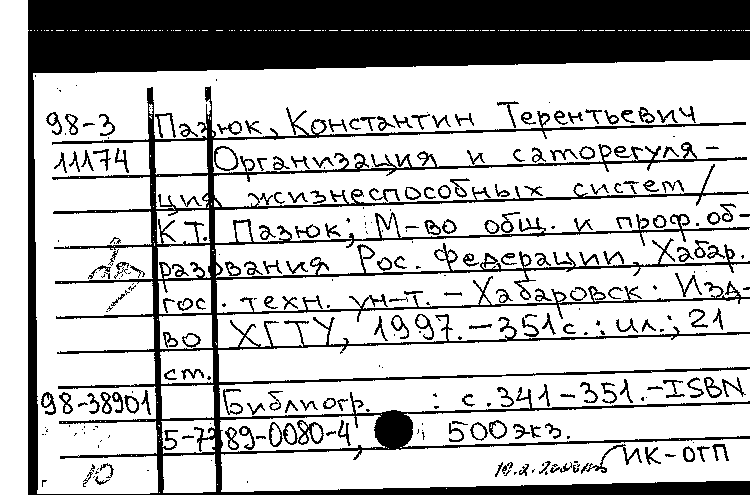 98-3 Пазюк, Константин Терентьевич
11174 Организация и саморегуля-
ция жизнеспособных систем /
К.Т. Пазюк; М-во общ. и проф. об-
разования Рос. Федерации, Хабар.
гос. техн. ун-т. – Хабаровск: Изд-
во ХГТУ, 1997. – 351 с. : ил.; 21
ст.
98-38901 Библиогр. : с. 341-351. – ISBN
5-7389-0080-4, 500 экз.
10 ИК-ОТП